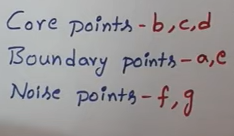 Core points - b,c,d
Boundary points - a,e
Noise points - f,g